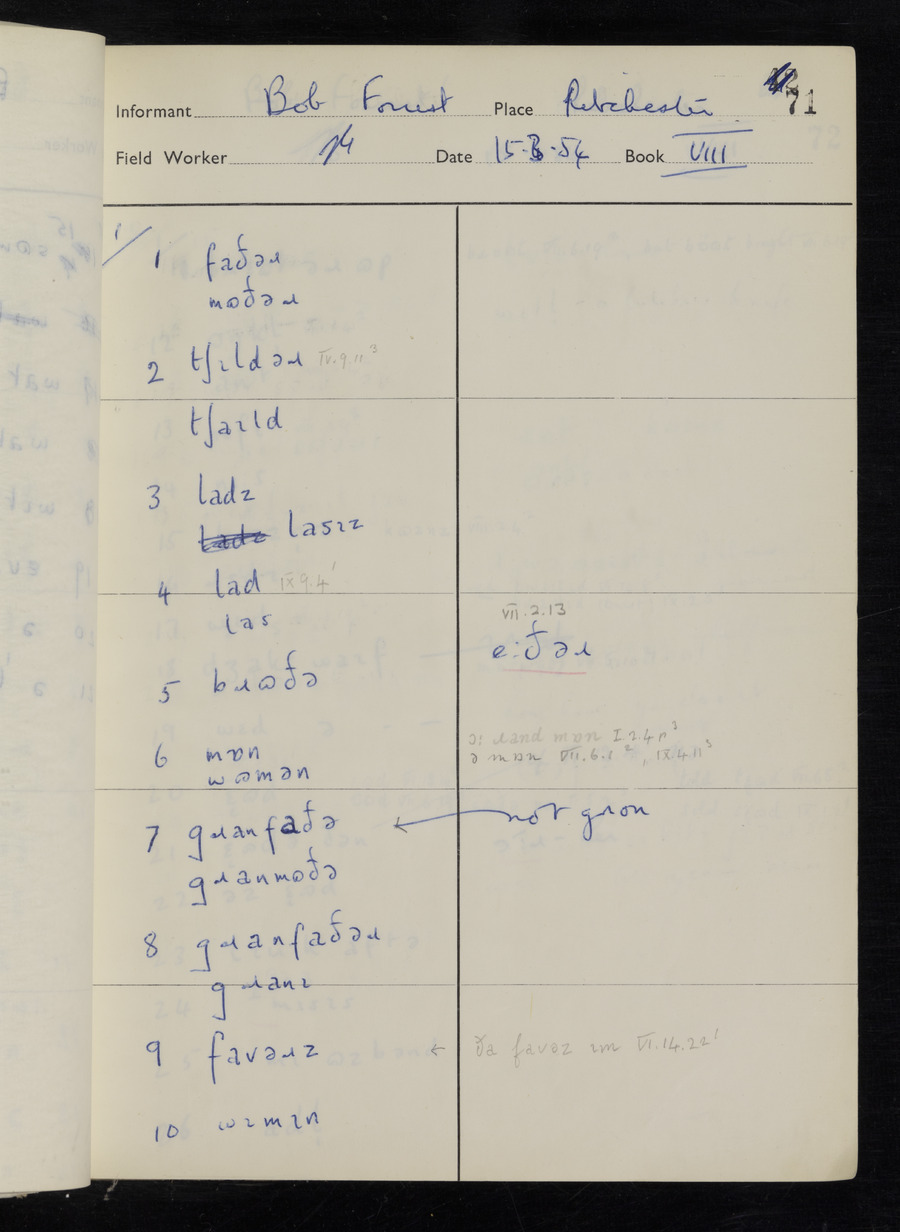 Informant Bob Forrest Place Ribchester 71
Field Worker Date 15.3.54 Book VIII
1
1 faðəɹ
mɷðəɹ
2 tʃɪldəɹ IV.9.11³
tʃaɪld
3 ladz
lasɪz
4 lad IX 9.4¹
las
VII.2.13
e:ðəɹ
5 bɹɷðə
6 mɒn
wɷmən
ɔ: ɹand mɒn I.2.4 n³
ə mɒn VII.6.2², IX.4.11³
7 gɹanfaðə ← not gɹɒn
gɹanmɷðə
8 gɹanfaðəɹ
gɹanɪ
9 favəɹz ← ða favəz ɪm VI.14.22¹
10 wɪmɪn